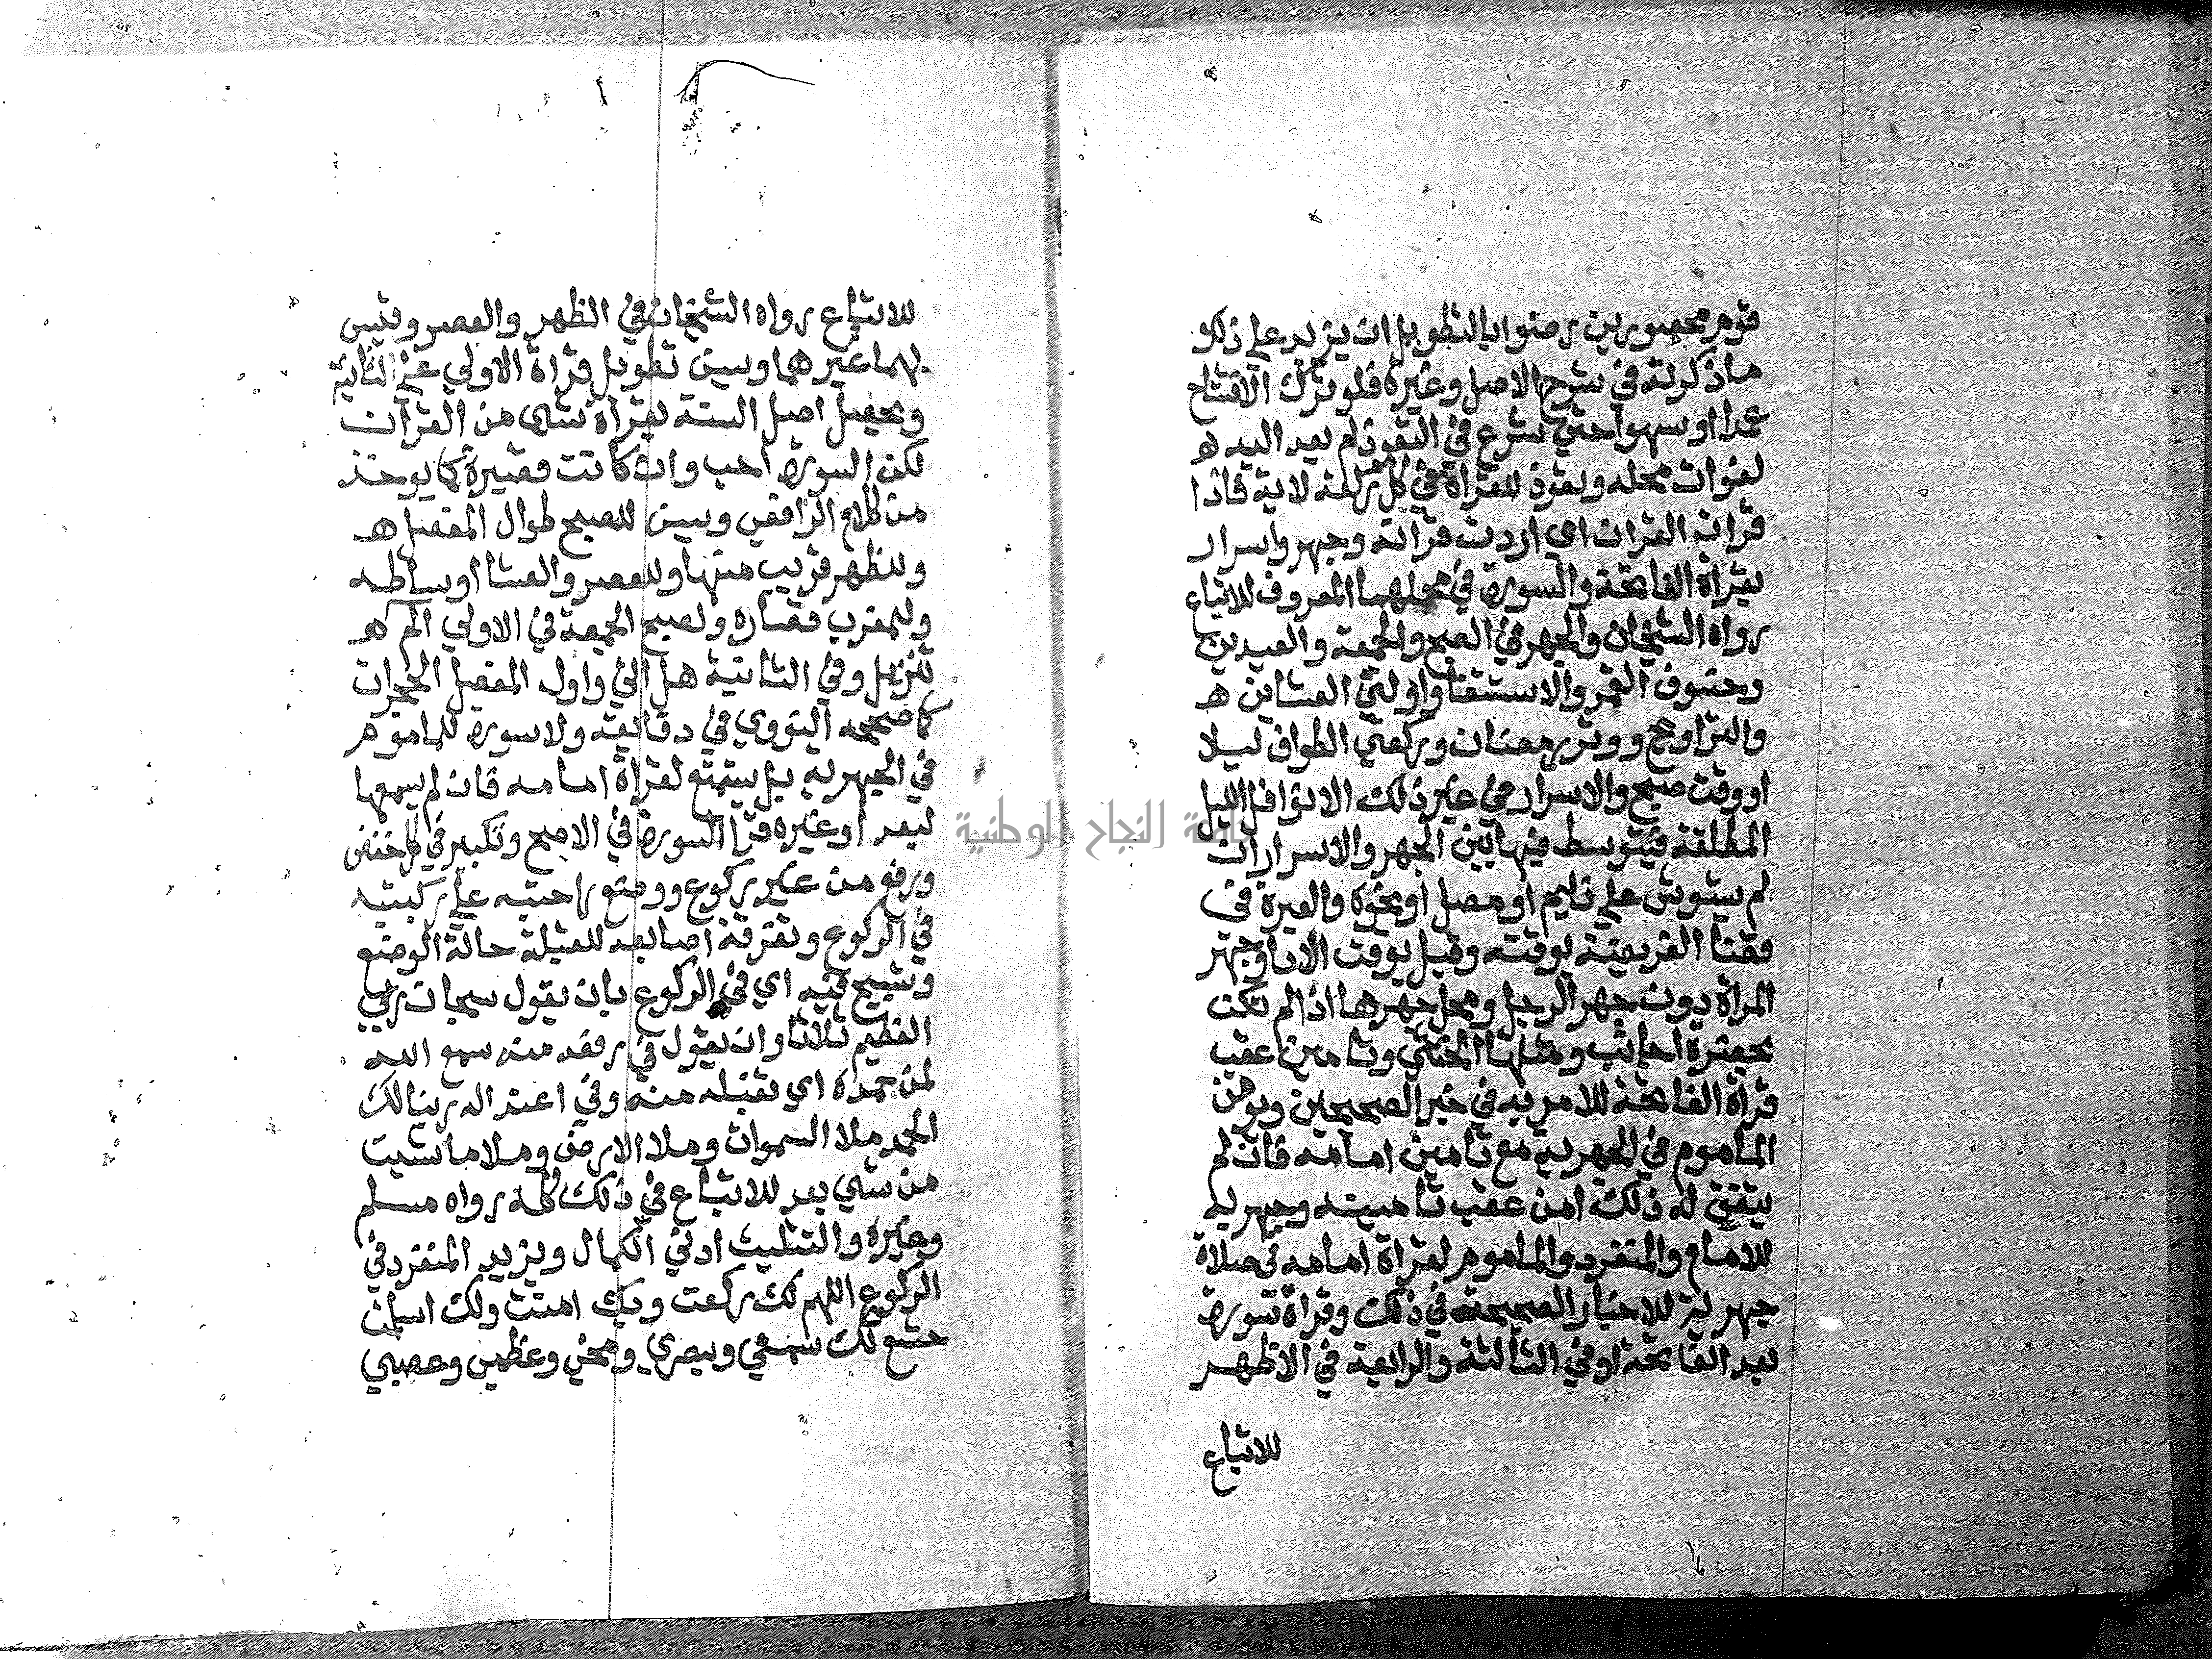 قوم محصورين رضوا بالتطويل ان يزيد علي ذلك
ما ذكرته في شرح الاصل وغيره فلو ترك الافتتاح
عمدا او سهوا حتي شرع في التعوذ لم يعد اليه ه
لفوات محله وتعوذ للقراة في كل ركعة لاية فاذا
قرات القران اي اردت قراته وجهر واسرار
بقراة الفاتحة والسورة في محلهما المعروف للاتباع
رواه الشيخان والجهر في الصبح والجمعة والعيدين
وخسوف القمر والاستسقا واولتي العشاين ه
والتراويح ووتر رمضان وركعتي الطواف ليلا
او وقت صبح والاسرار في غير ذلك الا نوافل الليل
المطلقة فيتوسط فيها بين الجهر والاسرار ان
لم يشوش علي نايم او مصل او نحوه والعبرة في
قضا الفريضة بوقته وقيل بوقت الادا وجهر
المراة دون جهر الرجل ومحل جهرها اذا لم تكن
بحضرة اجانب ومثلها الخنثي وتامين عقب
قراة الفاتحة للامر به في خبر الصحيحين ويومن
الماموم في الجهرية مع تامين امامه فان لم
يتفق له ذلك امن عقب تامينه وجهر به
للامام والمنفرد والماموم لقراة امامه في صلاة
جهرية للاخبار الصحيحة في ذلك وقراة سورة
بعد الفاتحة او في الثالثة والرابعة في الاظهر
للاتباع
للاتباع رواه الشيخان في الظهر والعصر وقيس
بهما غيرهما وسن تطويل قراة الاولي علي الثانية
ويحصل اصل السنة بقراة شي من القران
لكن السورة احب وان كانت قصيرة كما يوخذ
من كلام الرافعي وسن للصبح طوال المفصل ه
وللظهر قريب منها وللعصر والعشا اوساطه
وللمغرب قصاره ولصبح الجمعة في الاولي الم ه
تنزيل وفي الثانية هل اتي واول المفصل الحجرات
كما صححه النووي في دقايقه ولا سورة للماموم
في الجهرية بل يستمع لقراة امامه فان لم يسمعها
لبعد او غيره قرا السورة في الاصح وتكبير في كل خفض
ورفع من غير ركوع ووضع راحتيه علي ركبتيه
في الركوع وتفرقة اصابعه للقبلة حالة الوضع
وتسبيح فيه اي في الركوع بان يقول سبحان ربي
العظيم ثلاثا وان يقول في رفعه منه سمع الله
لمن حمده اي تقبله منه وفي اعتداله ربنا لك
الحمد ملا السموات وملا الارض وملا ما شيت
من شي بعد للاتباع في ذلك كله رواه مسلم
وغيره والتثليث ادني الكمال ويزيد المنفرد في
الركوع اللهم لك ركعت وبك امنت ولك اسلمت
خشع لك سمعي وبصري ومخي وعظمي وعصبي
جامعة النجاح الوطنية